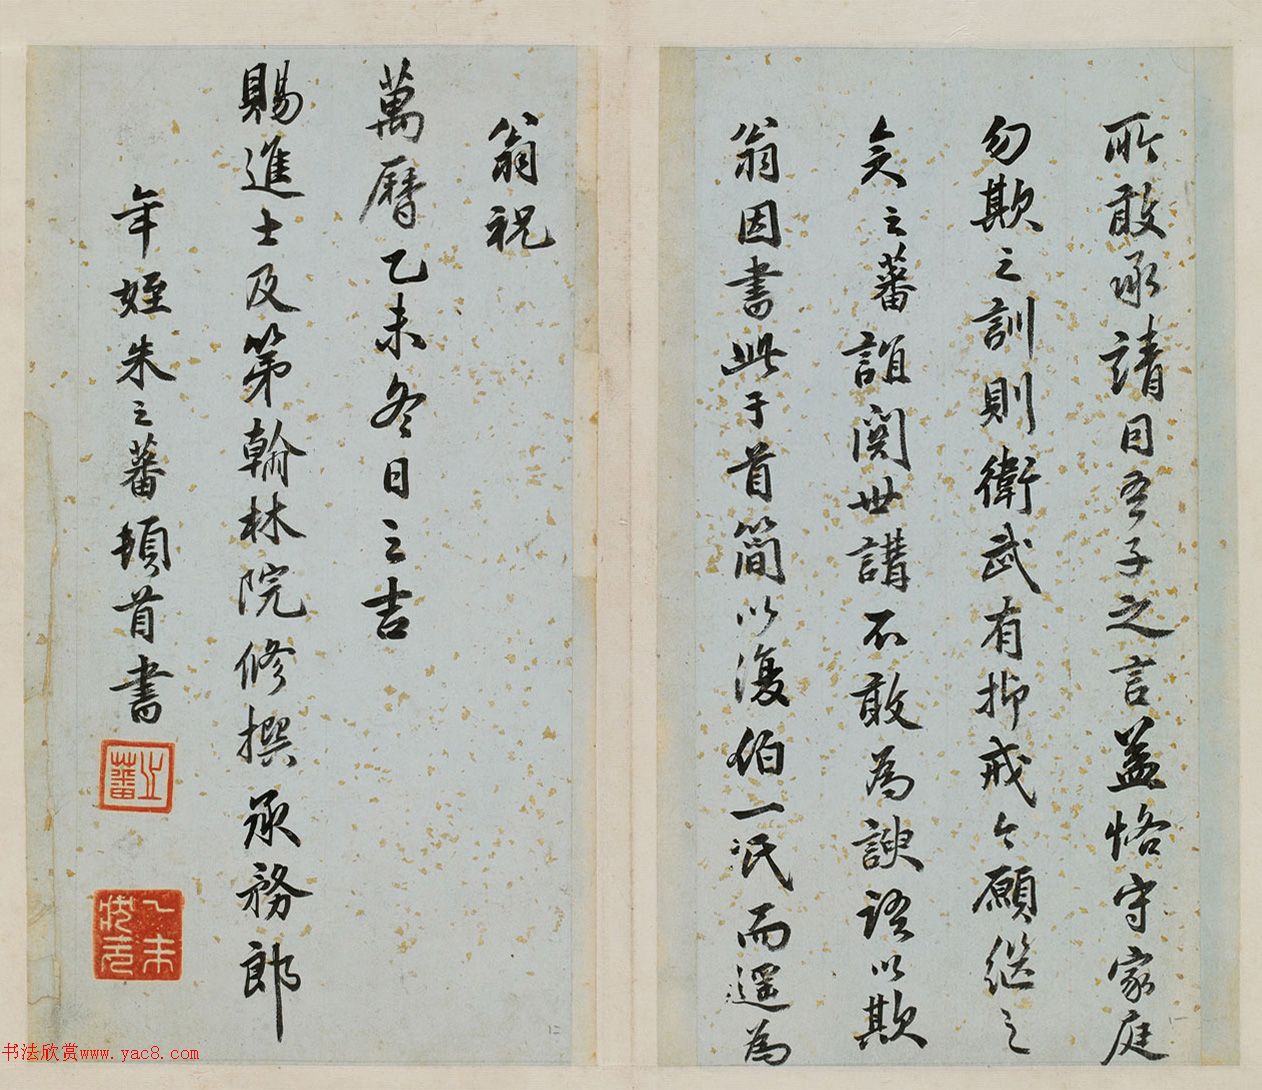 所敢承請目吾子之言益恪守家庭
勿欺之訓則衛武有抑戒今願繼之
矣之蕃誼関世講不敢為諛語以欺
翁因書此于首簡以復伯一氏而遥為
翁祝
萬曆乙未冬日之吉
賜進士及第翰林院修撰承務郎
年姪朱之蕃頓首書
之蕃
乙未状元
书法欣赏www.yac8.com